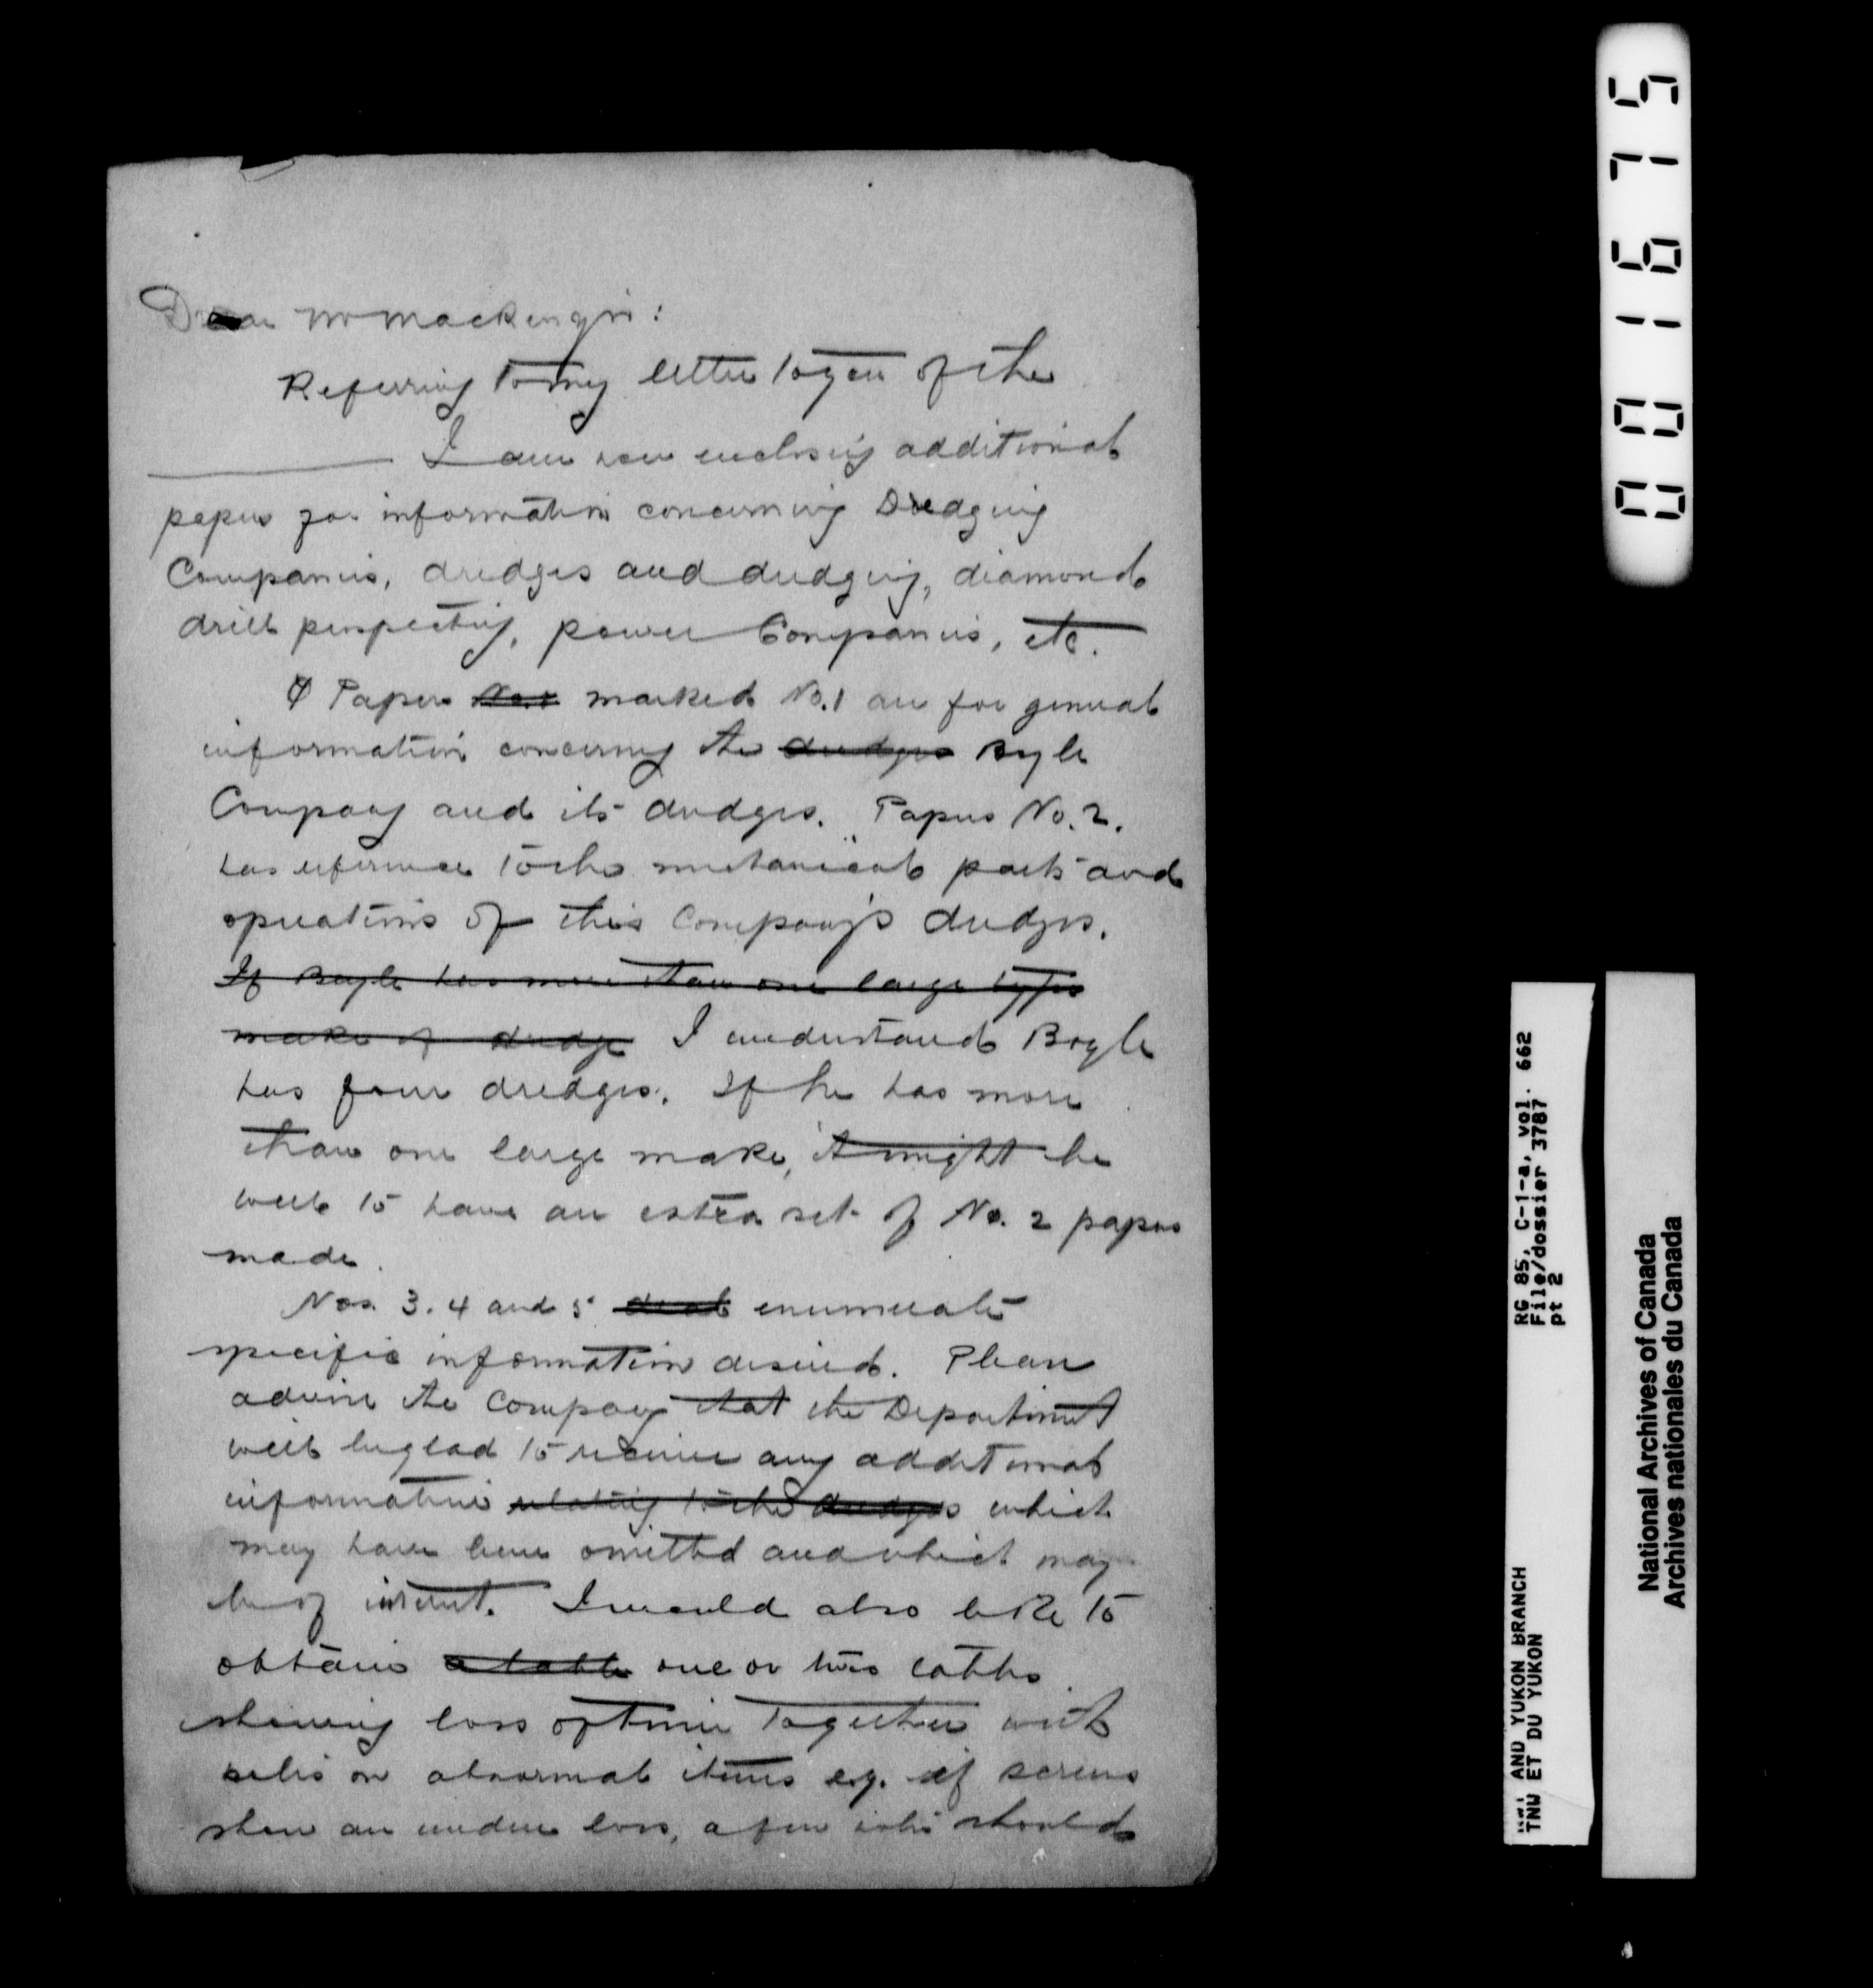 Dear Mr Mackenzie:
Referring to my letter to you of the
I am now enclosing additional
papers for information concerning Dredging
Companies, dredges and dredging, diamond
drill prospecting, power Companies, etc.
Papers No. 1 marked No. 1 are for general
information concerning the dredges Boyle
Company and its dredges. Papers No. 2.
has reference to the mechanical parts and
operations of this Company's dredges.
If Boyle has more than one large type
make of dredge I understand Boyle
has four dredges. If he has more
than one large make, it might be
well to have an extra set of No. 2 papers
made.
Nos. 3. 4 and 5 deal enumerate
specific information desired. Please
advise the Company that the Department
will be glad to receive any additional
information relating to the dredges which
may have been omitted and which may
be of interest. I would also like to
obtain a table one or two tables
showing loss of time together with
notes on abnormal items e.g. if screens
show an undue loss, a few words should
001675
RG 85, C-1-a, vol. 662
File/dossier 3787
pt 2
NWT AND YUKON BRANCH
TNW ET DU YUKON
National Archives of Canada
Archives nationales du Canada